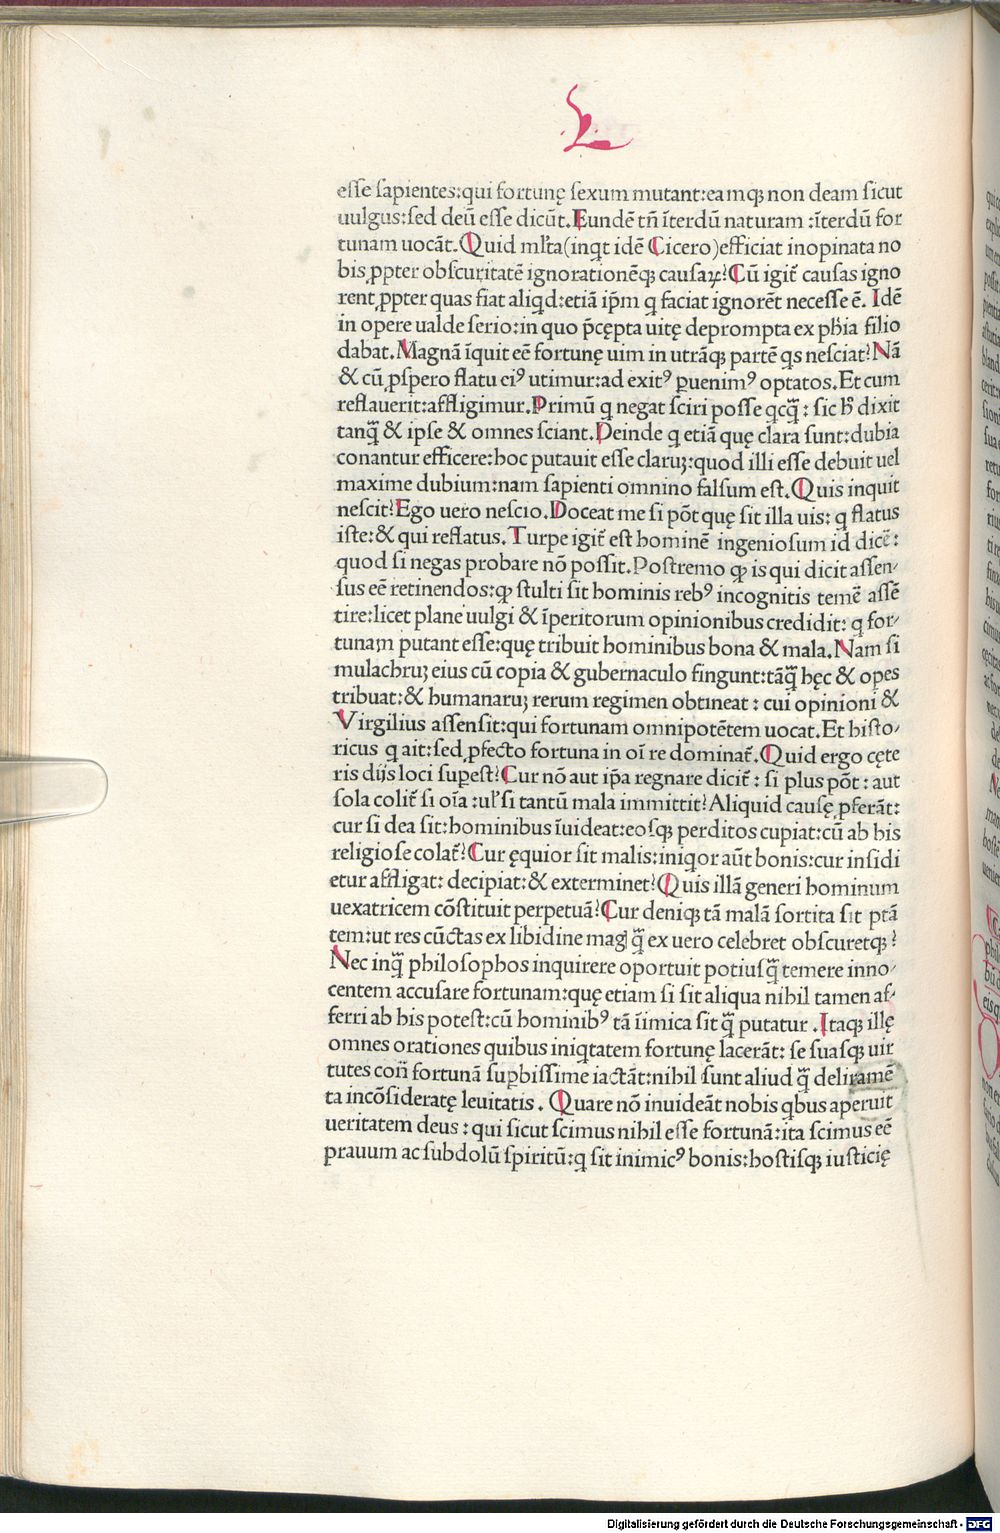 L
esse sapientes:qui fortunę sexum mutant:eamqꝫ non deam sicut
uulgus:sed deū esse dicūt.Eundē tñ īterdū naturam :īterdū for
tunam uocāt.Quid ml̃ta(inqt idē Cicero)efficiat inopinata no
bis ꝓpter obscuritatē ignorationēqꝫ causaꝝ?Cū igit̃ causas igno
rent ꝓpter quas fiat aliqd:etiā ip̄m q faciat ignorēt necesse ē. Idē
in opere ualde serio:in quo p̄cępta uitę deprompta ex ph̄ia filio
dabat.Magnā īquit eē fortunę uim in utrāqꝫ partē qs nesciat?Nā
& cū ꝓspero flatu eiꝰ utimur:ad exitꝰ ꝑuenimꝰ optatos.Et cum
reflauerit:affligimur.Primū q negat sciri posse qcq̄ : sic h̄ dixit
tanq̄ & ipse & omnes sciant.Deinde q etiā quę clara sunt:dubia
conantur efficere:hoc putauit esse claruꝫ:quod illi esse debuit uel
maxime dubium:nam sapienti omnino falsum est.Quis inquit
nescit?Ego uero nescio.Doceat me si pōt quę sit illa uis: q flatus
iste:& qui reflatus. Turpe igit̃ est hominē ingeniosum id dicē :
quod si negas probare nō possit.Postremo ꝙ is qui dicit assen-
sus eē retinendos:ꝙ stulti sit hominis rebꝰ incognitis temē assē
tire:licet plane uulgi & īperitorum opinionibus credidit: q for-
tunam putant esse:quę tribuit hominibus bona & mala.Nam si
mulachruꝫ eius cū copia & gubernaculo fingunt:tāq̄ hęc & opes
tribuat:& humanaruꝫ rerum regimen obtineat : cui opinioni &
Virgilius assensit:qui fortunam omnipotētem uocat.Et histo-
ricus q ait:sed ꝓfecto fortuna in oī re dominat̃.Quid ergo cęte
ris dijs loci suꝑest?Cur nō aut ip̄a regnare dicit̃ : si plus pōt : aut
sola colit̃ si oīa :ul' si tantū mala immittit?Aliquid causę ꝓferāt:
cur si dea sit:hominibus īuideat:eosqꝫ perditos cupiat:cū ab his
religiose colat̃?Cur ęquior sit malis:iniqor aūt bonis:cur insidi
etur affligat: decipiat:& exterminet?Quis illā generi hominum
uexatricem cōstituit perpetuā?Cur deniqꝫ tā malā sortita sit ptā
tem:ut res cūctas ex libidine magꝭ q̄ ex uero celebret obscuretqꝫ ?
Nec inq̄ philosophos inquirere oportuit potiusq̄ temere inno-
centem accusare fortunam:quę etiam si sit aliqua nihil tamen af-
ferri ab his potest:cū hominibꝰ tā īimica sit q̄ putatur .Itaqꝫ illę
omnes orationes quibus iniqtatem fortunę lacerāt: se suasqꝫ uir
tutes coñ fortunā suꝑbissime iactāt:nihil sunt aliud q̄ deliramē
ta incōsideratę leuitatis . Quare nō inuideāt nobis qbus aperuit
ueritatem deus : qui sicut scimus nihil esse fortunā:ita scimus eē
prauum ac subdolū spiritū:q sit inimicꝰ bonis:hostisqꝫ iusticię
Digitalisierung gefördert durch die Deutsche Forschungsgemeinschaft - DFG